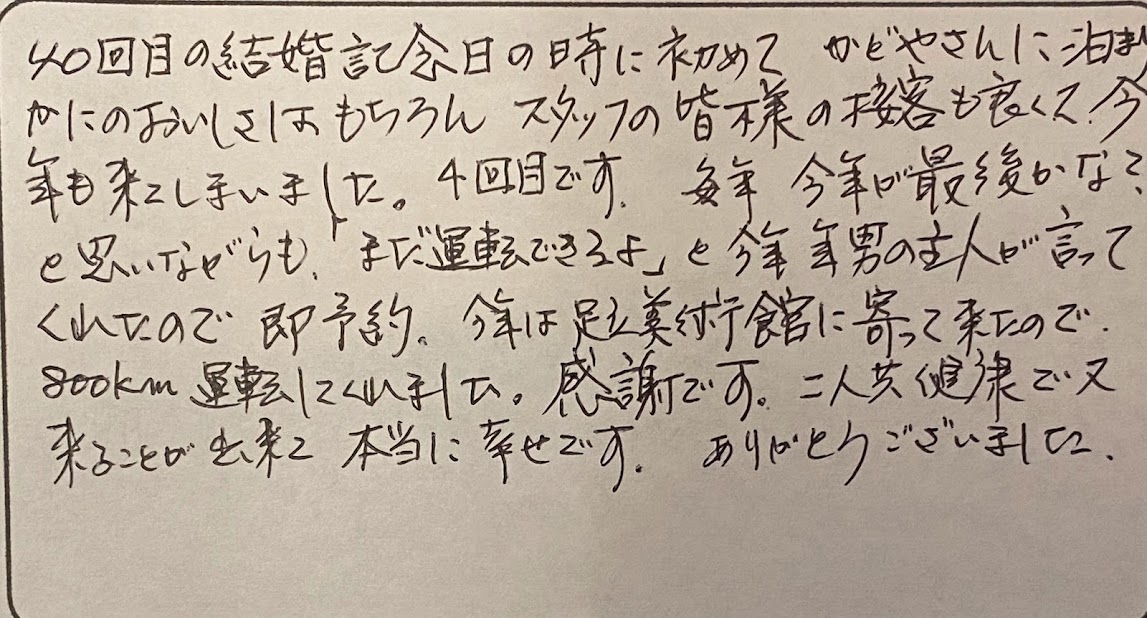 40回目の結婚記念日の時に初めて かどやさんに泊まり
かにのおいしさはもちろん スタッフの皆様の接客も良くて、今
年も来てしまいました。4回目です。 毎年 今年が最後かなで、
と思いながらも、「まだ運転できるよ」と今年 年男の主人が言って
くれたので 即予約。 今年は足立美術館に寄って来たので、
800km運転してくれました。感謝です。二人共健康で又
来ることが出来て 本当に幸せです。 ありがとうございました。